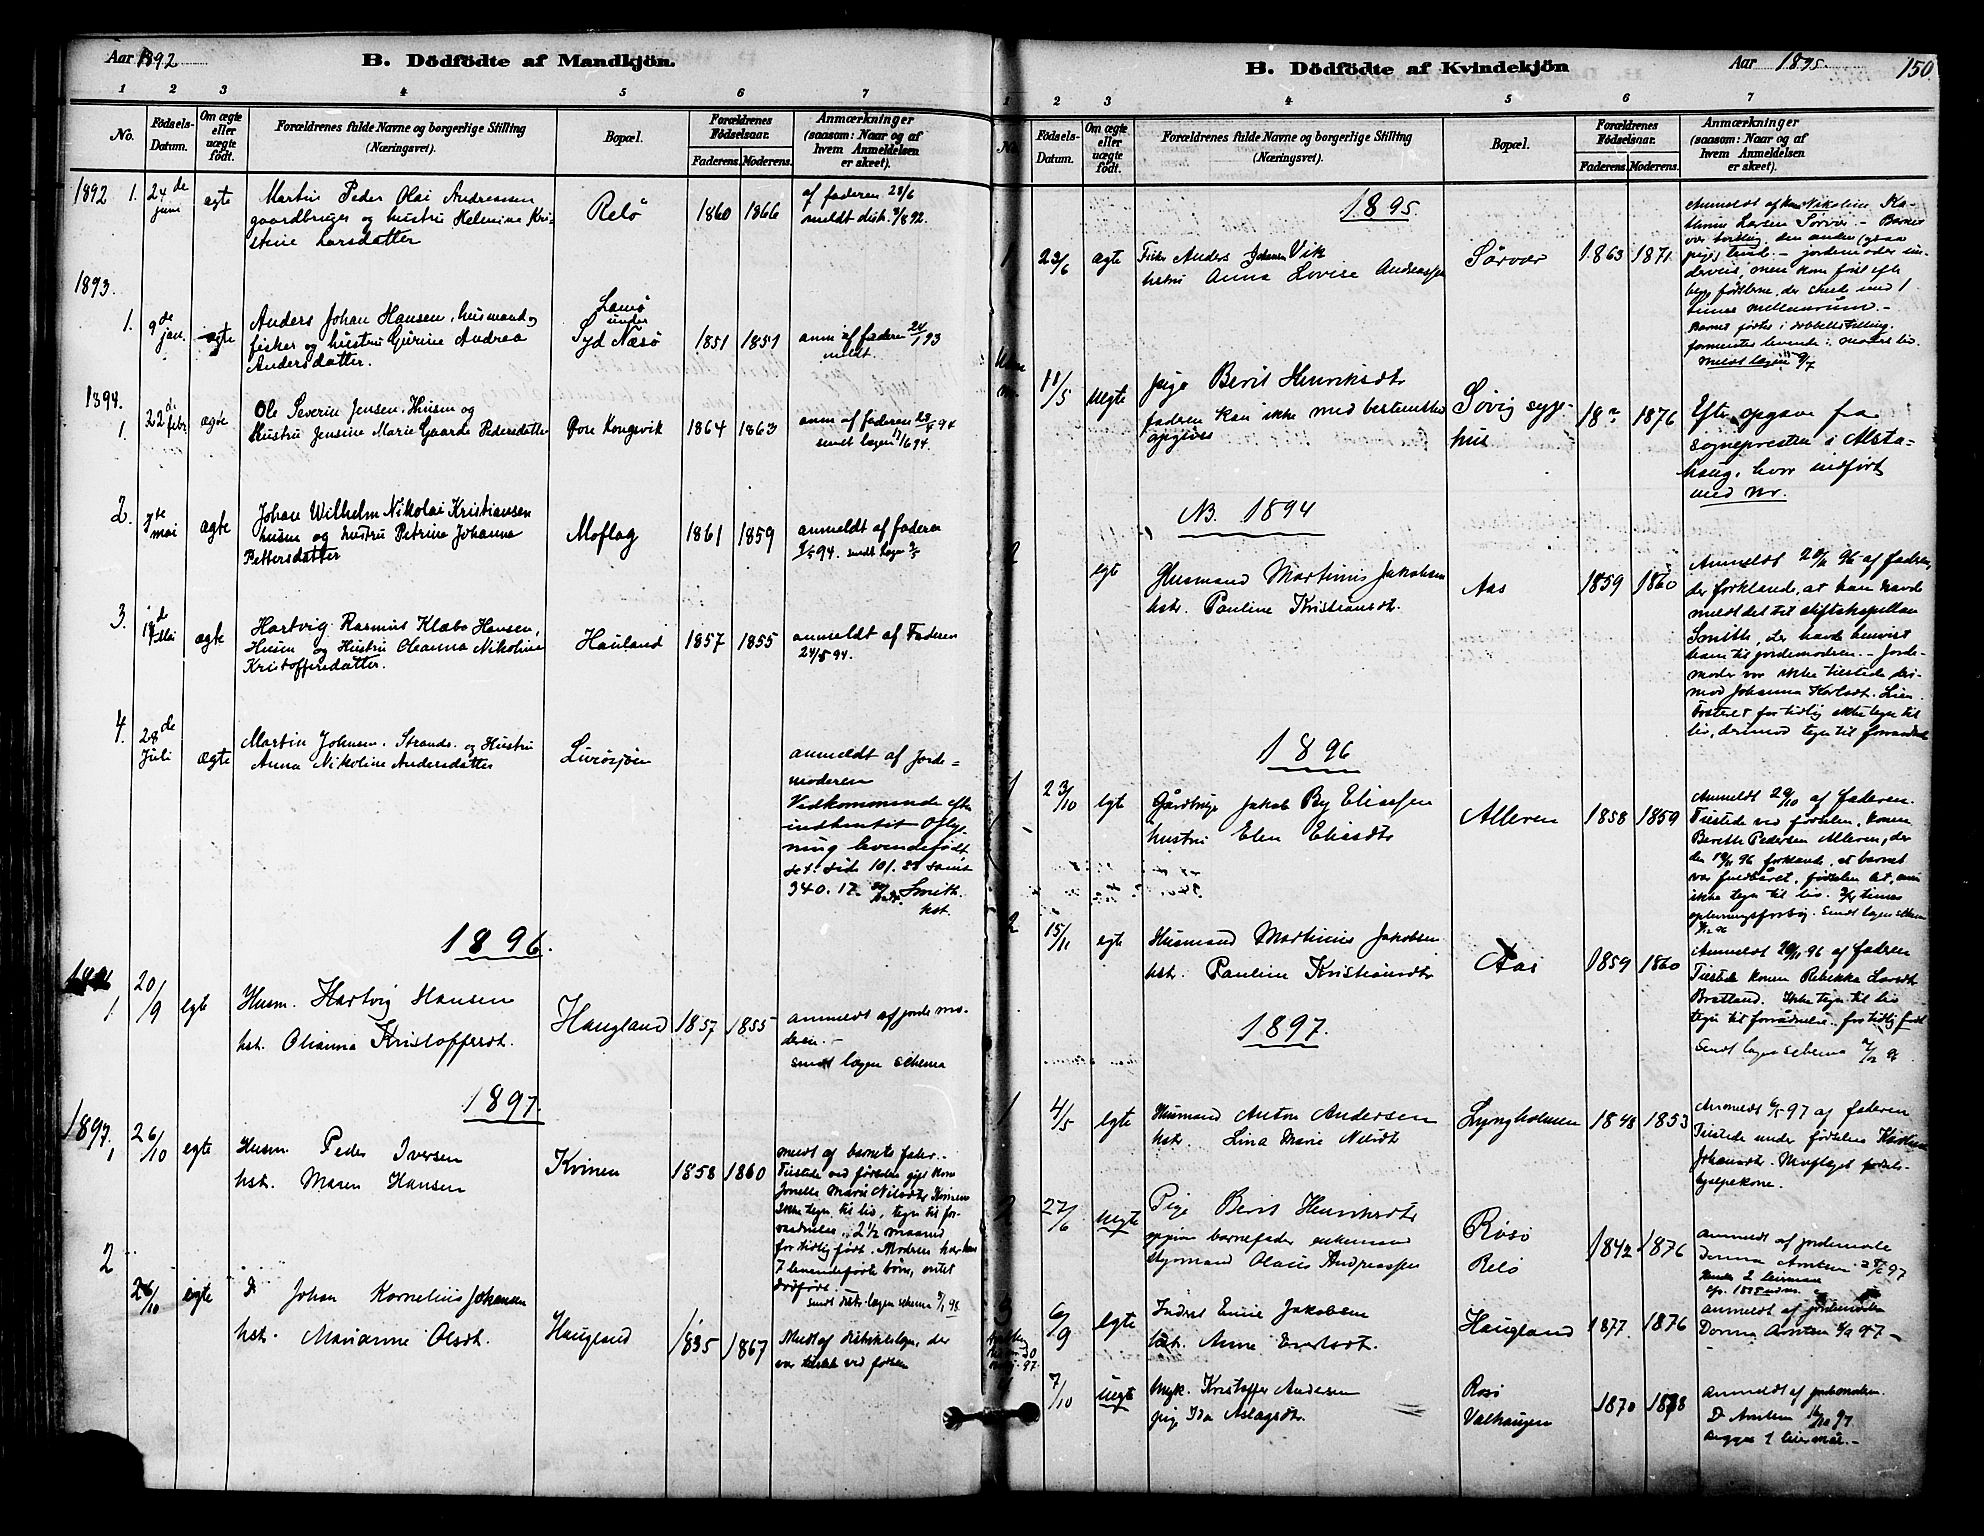 Aar 1892
B. Dödfödte af Mandkjön.
1 2 3 4 5 6 7
No.
Födsels-
Datum.
Om ægte
eller
uægte
födt.
Forældrenes fulde Navne og borgerlige Stilling
(Næringsvei).
Bopæl.
Forældrenes
Födselsaar.
Faderens. Moderens.
Anmærkninger
(saasom: Naar og af
hvem Anmeldelsen
er skeet).
1892 1. 24de juni ægte
Martin Peder Olai Andreassen
gaardbruger og hustru Helmine Kri-
stine Larsdatter
Relö 1860 1866
af faderen 28/6
meldt distr. 3/8 92.
1893.
1. 9de jan. ægte
Anders Johan Hansen, husmand og
fisker og hustru Gurine Andrea
Andersdatter.
Lamö
under
Syd Næsö 1851 1851
anm af faderen 24/1 93
meldt.
1894.
1. 22de febr ægte
Ole Severin Jensen. Husm og
Hustru Jensine Marie Gaarde Pedersdatter
Dore Kongsvik 1864 1863
anm af faderen
sendt lægen 11/6 94.
2. 7de mai ægte
Johan Wilhelm Nikolai Kristiansen
husm og hustru Petrine Johanna
Pettersdatter
Moflag 1861 1859
anmeldt af faderen
9/5 94. sendt lægen 9/5
3. ægte
Hartvig Rasmus Klæbo Hansen,
Husm og Hustru Oleanna Nikoline
Kristoffersdatter.
Hauland 1857 1855
anmeldt af Faderen
24/5 94.
4. 28de Juli ægte
Martin Johnsen. Strands. og Hustru
Anna Nikoline Andersdatter
Luröisjöen
anmeldt af Jorde-
moderen
Vedkommende efter
indhentet Oply-
ning levendefödt
se: side 101. 88 samt
340. 17. Smith.
kst.
1896.
1896
1. 20/9 egte
Husm. Hartvig Hansen
hst. Olianna Kristoffersdt.
Haugland 1857 1855
anmeldt af jordemo-
deren.-
sendt lægen schema
1897.
1897.
1 26/10 egte
Husm. Peder Iversen
hst. Maren Hansen
Kvinen 1858 1860
meldt af barnets fader..
Tilstede ved fødselen gift kone
Jonelle Marie Nilsdtr Kvinen
Ikke tegn til liv, tegn til for-
raadnelse.. 2½ maaned
for tidlig født. Moderen har havt
7 levendefødte børn, intet
dødfødt.
sendt distr. lægen schema 3/1 98.
2 26/10 egte
D Johan Kornelius Johansen
hst. Marianne Olsdt.
Haugland 1835 1867
Meldt af distriktslægen, der
var tilstede ved fødsen
B. Dödfödte af Kvindekjön
Aar 1895.
150
1 2 3 4 5 6 7
No.
Födsels-
Datum.
Om ægte
eller
uægte
födt.
Forældrenes fulde Navne og borgerlige Stilling
(Næringsvei).
Bopæl.
Forældrenes
Födselsaar.
Faderens. Moderens.
Anmærkninger
(saasom: Naar og af
hvem Anmeldelsen
er skeet).
1895
1 23/6 ægte
Fisker Anders Johansen Vik
hstru Anna Lovise Andreassen
Sörvær 1863 1871
Anmeldt af Nikoline Ka-
thrine Larsen Sørvær - Barnet
var tvilling, den anden (ogsaa
pige) levde. - jordemoder un-
derveis, men kom først efter
begge fødslerne, der skede med 1
times mellemrum. -
Barnet fødtes i dobbeltstilling.
formentes levende i moders liv.
Meldt lægen 9/7
11/5 uegte
pige Berit Henriksdtr
faderen kan ikke med bestemthed
opgives
Søvig syge-
hus 18? 1876
Efter opgave fra
sognepresten i Alsta-
haug, hvor indført
med nr.
NB. 1894
2 egte
Husmand Martinus Jakobsen
hstr. Pauline Kristiansdt.
Aas 1859 1860
Anmeldt 96 af faderen,
der forklarede, at han havde
meldt det til stiftskapellan
Smith, der havde henvist
ham til jordemoderen. - Jorde-
moder var ikke tilstede der-
imod Johanna Karlsdt. Lien
Fosteret for tidlig ikke tegn til
liv, derimod tegn til forraadnelse
1896
1 23/10 egte
Gårdbruger Jakob By Eliassen
hustru Elen Eliasdtr
Alleren 1858 1859
Anmeldt 29/10 af faderen.
Tilstede ved fødselen, konen
Berethe Pedersen Alleren, der
den 19/11 96 forklarede, at barnet
var fuldbåret, fødselen let, men
ikke tegn til liv. times
oplivningsforsøg. Sendt lægen schema
2 15/11 egte
Husmand Martinus Jakobsen
hst. Pauline Kristiansdtr
Aas 1859 1860
Anmeldt 20/11 96 af faderen
Tilstede konen Rebekka Larsdt
Bratland. Ikke tegn til liv
tegn til forrådnelse. for tidlig født
Sendt lægen schema
1897.
1 4/5 egte
Husmand Anton Andersen
hstr. Lina Marie Nilsdt
Lyngholmen 1848 1853
Anmeldt 6/5 97 af faderen
Tilstede under fødselen
Johansdt. Moflaget fødsels-
hjelpekone.
2 27/6 uegte
Pige Berit Henriksdtr
opgiven barnefader enkemand
styrmand Olaus Andreassen
Røsö
Relö 1842 1876
anmeldt af jordemoder
Dorma Arntsen 28/6 97
Hendes 2 leiermaal
3 6/9 egte
Inderst Emil Jakobsen
hst. Anne Evertsdt.
Haugland 1877. 1876
anmeldt af jordemoderen
Dorma Arntsen 97 -
7/10 uegte
Ungk. Kristoffer Andersen
pige Ida Aslagsdt.
Røsö
Valhaugen 1870 1878
anmeldt af jordemoderen
D Arntsen 97.
Begges 1 leiermål.-